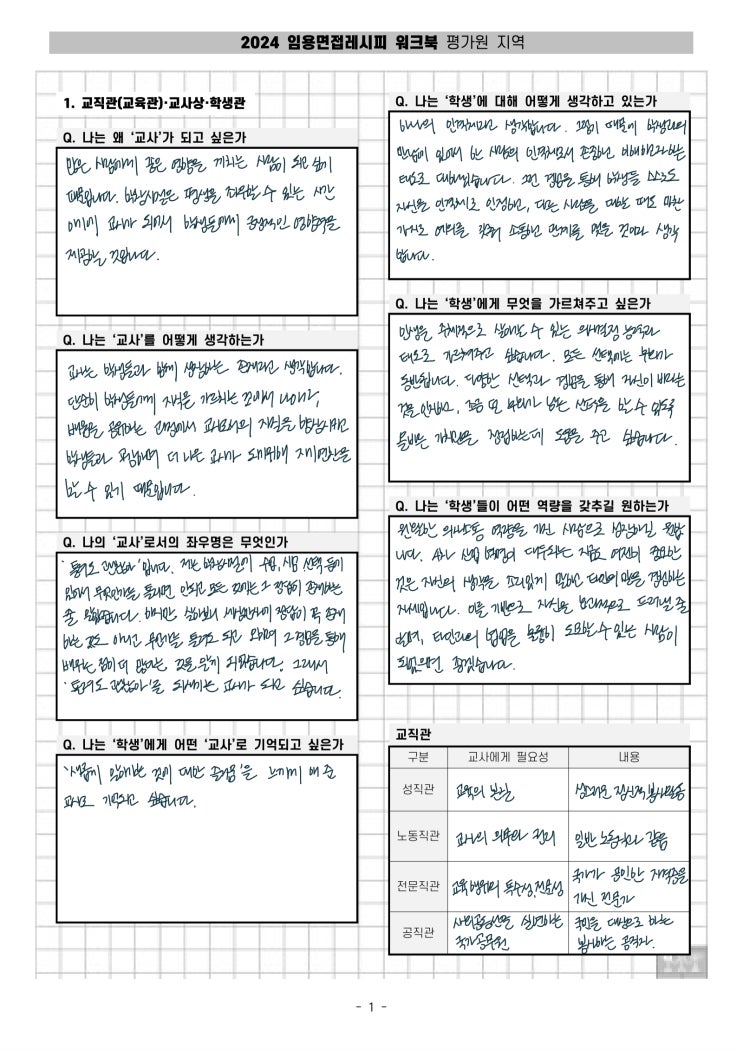 2024 임용면접레시피 워크북 평가원 지역
1. 교직관(교육관)·교사상·학생관
Q. 나는 왜 '교사'가 되고 싶은가
많은 사람에게 좋은 영향을 끼치는 사람이 되고 싶기
때문입니다. 학창시절은 평생을 좌우할 수 있는 시간
이기에 교사가 되어서 학생들에게 긍정적인 영향력을
제공하는 것입니다.
Q. 나는 '교사'를 어떻게 생각하는가
교사는 학생들과 함께 성장하는 존재라고 생각합니다.
단순히 학생들에게 지식을 가르치는 것에서 나아가,
배움을 공유하는 과정에서 교사로서의 자질을 향상시키고
학생들과 교감하며 더 나은 교사가 되기위해 자기연찬을
할 수 있기 때문입니다.
Q. 나의 '교사'로서의 좌우명은 무엇인가
'틀려도 괜찮아'입니다. 저는 학창시절에 수업, 시험 선택 등에
있어서 무엇인가를 틀리면 안되고 모든 것에는 그 정답이 존재하는
줄 알았습니다. 하지만, 살아보니 세상만사에 정답이 꼭 존재
하는 것도 아니고 무언가를 틀려도 되고 오히려 그 경험을 통해
배우는 점이 더 많다는 것을 알게 되었습니다. 그래서
'틀려도 괜찮아'를 되새기는 교사가 되고 싶습니다.
Q. 나는 '학생'에게 어떤 '교사'로 기억되고 싶은가
'새롭게 알아가는 것에 대한 즐거움'을 느끼게 해 준
교사로 기억되고 싶습니다.
Q. 나는 '학생'에 대해 어떻게 생각하고 있는가
하나의 인격체라고 생각합니다. 그렇기 때문에 학생과의
만남에 있어서 한 사람의 인격체로서 존중하고 이해하고자 하는
태도로 대하겠습니다. 그런 경험을 통해 학생들 스스로도
자신을 인격체로 인정하고, 다른 사람을 대할 때도 마찬
가지로 예의를 갖춰 소통하고 관계를 맺을 것이라 생각
합니다.
Q. 나는 '학생'에게 무엇을 가르쳐주고 싶은가
인생을 주체적으로 살아갈 수 있는 의사결정 능력과
태도를 가르쳐주고 싶습니다. 모든 선택에는 후회가
동반됩니다. 다양한 선택과 경험을 통해 자신이 바라는
것을 인지하고, 조금 덜 후회가 남는 선택을 할 수 있도록
올바른 가치관을 정립하는데 도움을 주고 싶습니다.
Q. 나는 '학생'들이 어떤 역량을 갖추길 원하는가
원활한 의사소통 역량을 가진 사람으로 성장하길 원합
니다. AI나 산업 혁명이 대두되는 지금도 여전히 중요한
것은 자신의 생각을 조리있게 말하고 타인의 말을 경청하는
자세입니다. 이를 기반으로 자신을 효과적으로 드러낼 줄
알며, 타인과의 협업을 능동히 도모할 수 있는 사람이
되었으면 좋겠습니다.
교직관
구분 교사에게 필요성 내용
성직관 교육의 본질 정신적 봉사활동
노동직관 교사의 의무와 권리 일반 노동자와 같음
전문직관 교육행위의 특수성, 전문성 국가가 공인한 자격증을
가진 전문가
공직관 사회공공선을 실현하는
국가공무원 국민을 대상으로 하는
봉사하는 공직자.
- 1 -